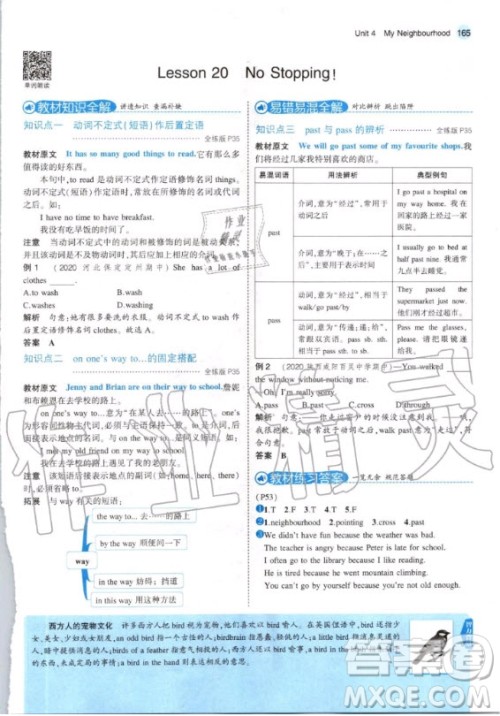 Unit 4 My Neighbourhood 165
单词朗读
Lesson 20 No Stopping!
教材知识全解 讲透知识 查漏补缺
知识点一 动词不定式(短语)作后置定语
全练版 P35
教材原文 It has so many good things to read. 它有那么多
值得读的好东西。
本句中,to read 是动词不定式作后置定语修饰名词 things。
动词不定式(短语)作定语时,常放在所修饰的名词或代词
之后。如:
I have no time to have breakfast.
我没有吃早饭的时间了。
注意 当动词不定式中的动词和被修饰的词是被动关系,
并且该动词是不及物动词时,其后要加介词。
例 1 (2020 河北保定定州期中) She has a lot of
clothes
A.to wash B.wash
C.washes D.washing
解析 句意:她有很多要洗的衣服。动词不定式 to wash 作
后置定语修饰名词 clothes。
答案 A
知识点二 on one's way to...的固定搭配
全练版 P35
教材原文 Jenny and Brian are on their way to school. 詹妮
和布赖恩在去学校的路上。
on one's way to...意为“在某人去……的路上”,one's 为
形容词性物主代词,必须与主语保持一致。to 为介词,后接
地点名词,与 on the way to...是同义短语。如:
I met my old friend on my way to school.
我在去学校的路上遇见了我的老朋友。
注意 该短语后接表示地点的副词(如 home, here, there)
时,to 要省略。
拓展 与 way 有关的短语:
way
the way to... 去……的路上
by the way 顺便问一下
in the way 妨碍;挡道
in this way 用这种方法
易错易混全解 对比辨析 跳出陷阱
知识点三 past 与 pass 的辨析
全练版 P35
教材原文 We go past some of my favourite shops. 我
们将经过几家我最喜欢的商店。
易混词语 用法辨析 典型例句
past
介词,意为“经过”,常用于
动词之后
I go past a hospital on
my way home. 我在
回家的路上经过一家
医院。
介词,意为“晚于;在……之
后”,主要用于表示时间
I usually go to bed at
half past nine. 我通常
九点半去睡觉。
pass
动词,意为“经过”,相当于
walk/go past/by
They passed the
supermarket just now.
他们刚才经过超市。
动词,意为“传递;递给”,
Pass me the glasses,
please. 请把眼镜递
给我。
the window without noticing me.
—Oh, I'm really sorry.
A.past B.pass C.cross D.through
符合句意。
答案 B
教材练习答案 一览无余 规范答题
(P53)
❶1.T 2.F 3.T 4.F 5.T
❷1.neighbourhood 2.pointing 3.cross 4.past
❸We didn't have fun because the weather was bad.
The teacher is angry because Peter is late for school.
I often go to the library because I like reading.
I can't go because I don't have enough time.
You can't go by yourself because you're not old enough.
西方人的宠物文化 许多西方人把 bird 视为宠物,他们喜欢以 bird 喻人。在英国俚语中,bird 多指年轻少
女、美女,少妇如女朋友,an odd bird 指一个古怪的人;birdbrain 指愚蠢、轻浮的人;a bird of passage 指漂泊不定
的人;birds of a feather 指意气相投的人,一丘之貉;a bird in the bush 指未到手的东西、
未成定局的事情;a bird in the hand 则表达相反的意思。
作业精灵
答案圈
MXQE.COM